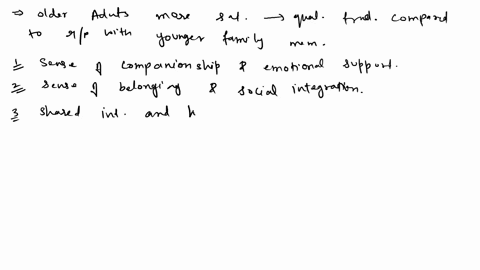 → older Aduts more sat. → qual. frnd. compared
to r/p with younger family mem.
1 Sense of companionship & emotional support.
2 sense of belonging & social integration.
3 shared int. and